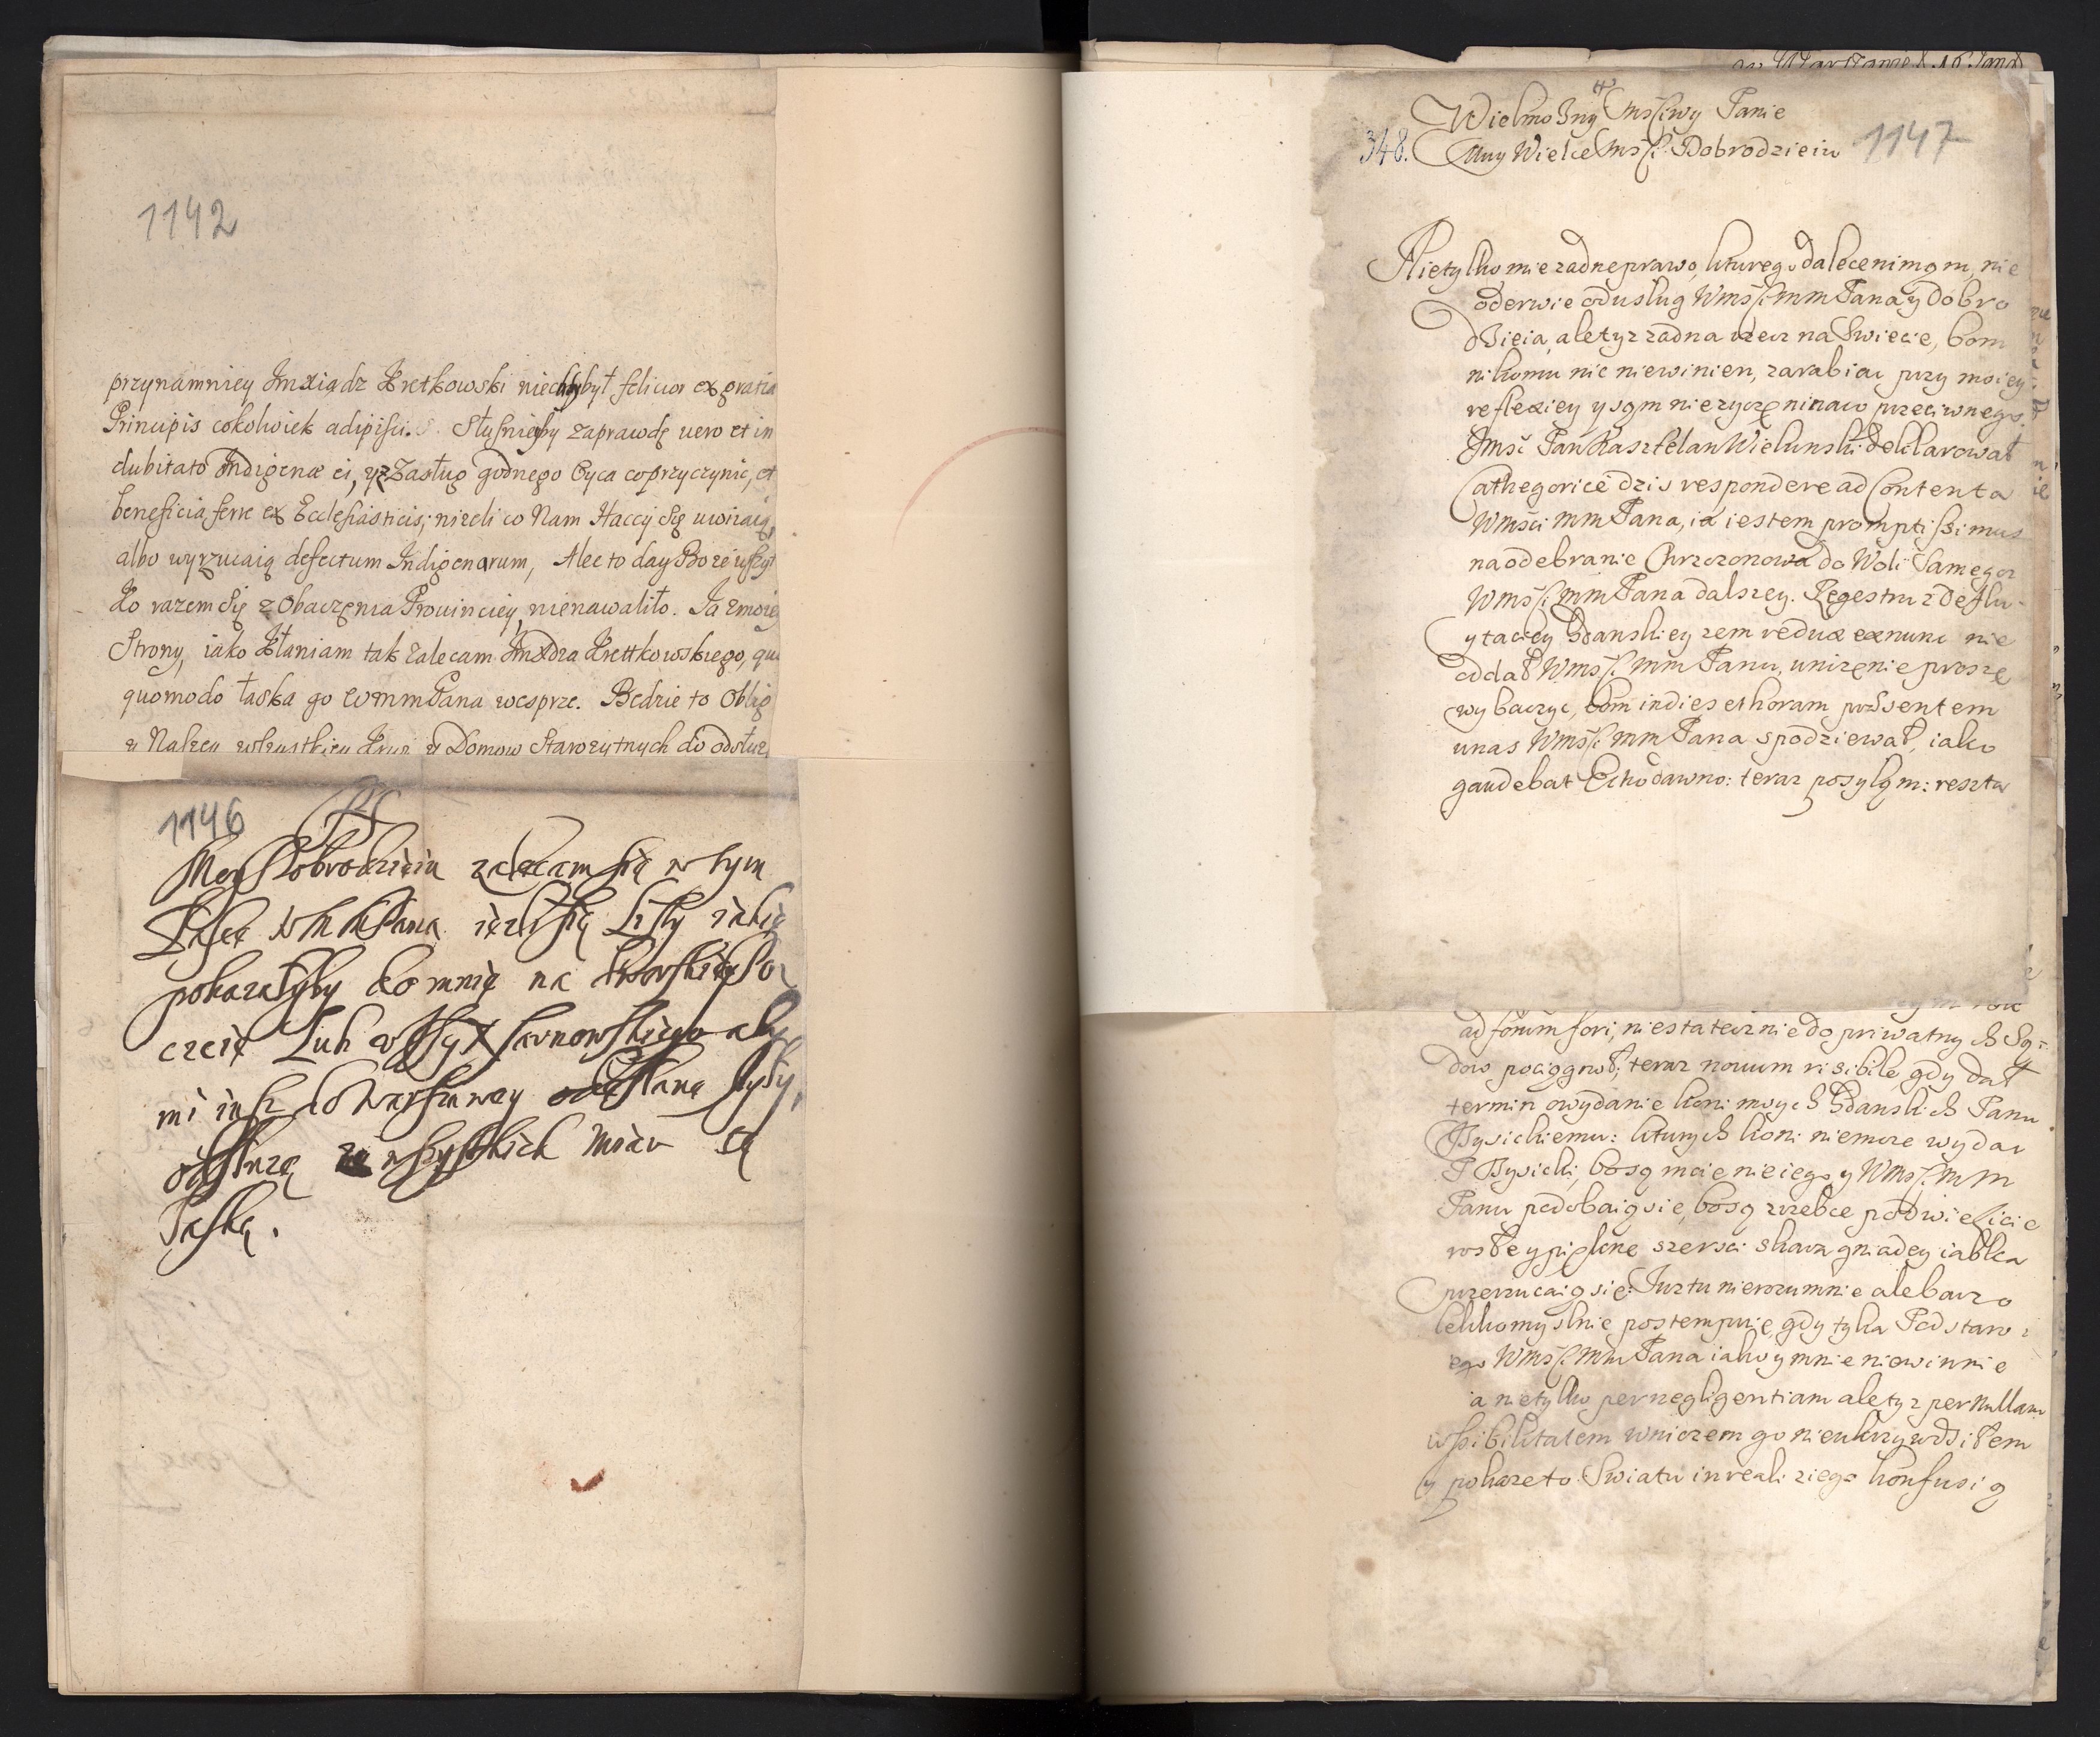 1142
przynamniey Imxiądz Kretkowski niechby był felicior ex gratia
Principis cokolwiek adipisci. Słusnieby zaprawdę vero et in
dubitato Indigenæ ei, yz Zasług godnego Oyca co przyczynić, et
beneficia ferre ex Ecclesiasticis; niżeli co Nam Haccy Się uwiiaią,
albo wyrzucaią defectum Indigenarum, Alec to day Boże
ko razem Się z Obaczenia Prouinciey, nienawaliło. Ia zmoiey
Strony, iako kłaniam tak zalecam Imxdza Krettkowskiego,
quomodo łaska go WMMPana wesprze. Bedzie to Oblig
y Naszey wszystkiey Krwi y Domow Starożytnych do odsług
1146
PS
Moy Dobrodzieiu zalecam się w tym
Łasce WMMPana ieżli się Listy iakie
pokazałyby do mnie na Poz
czcie Lub
mi iuż do Warszawy odesłane były,
odsłużę ze wszystkich miar tę
Łaskę.
w Warszawie d. 16
Wielmożny Mści wy Panie
348. Muy Wielce Mśći Dobrodzieiu 1147
Nietylko mie zadne prawo, kturego dalece nimąm, nie
oderwie od usług Wmśći mm Pana y dobro
dzieia, ale tyz zadna rzecz na Swiecie, bom
nikomu nic niewinien, zarabiac przy moiey
reflexiey y sąm nie zyczę ninacz przeciwnego.
Jmść Pan Kasztelan Wielunski deklarował
Cathegorice dzis respondere ad Contenta
Wmści mm Pana, ia iestem promptissimus
na odebranie Chrzczonowa do Woli Samego
Wmśći mm Pana dalszey. Regestru z deflu-
ytaciey Gdanskiey zem redux exnunc nie
oddał Wmśći mm Panu, unizenie proszę
wybaczyc, bom indies et horam przsentem
u nas Wmśći mm Pana spodziewał, iako
gaudebat Echo dawno: teraz posyłąm: reszta
ad forum fori, niestatecznie do priwatnych Są-
dow pociągnoł; teraz nouum risibile, gdy dał
termin o wydanie koni moych Gdanskich Panu
Bysickiemu: kturych koni niemoze wydac
P Bysicki, bo są moie nie iego y Wmśći mm
Panu podobaią sie, bo są zrzebce po dwie lecie
rosłe y piękne szersci skaro gniadey iabłka
przerzucaią się: Iuz tu nierozumnie ale barzo
lekkomyslnie postempuie gdy tyka Podstaro
ego Wmśći mm Pana iako y mnie niewinnie
ia nietylko per negligentiam ale tyz per nullam
possibilitatem w niczem go nieukrzywdziłem
y pokaze to Swiatu in reali z iego konfusią